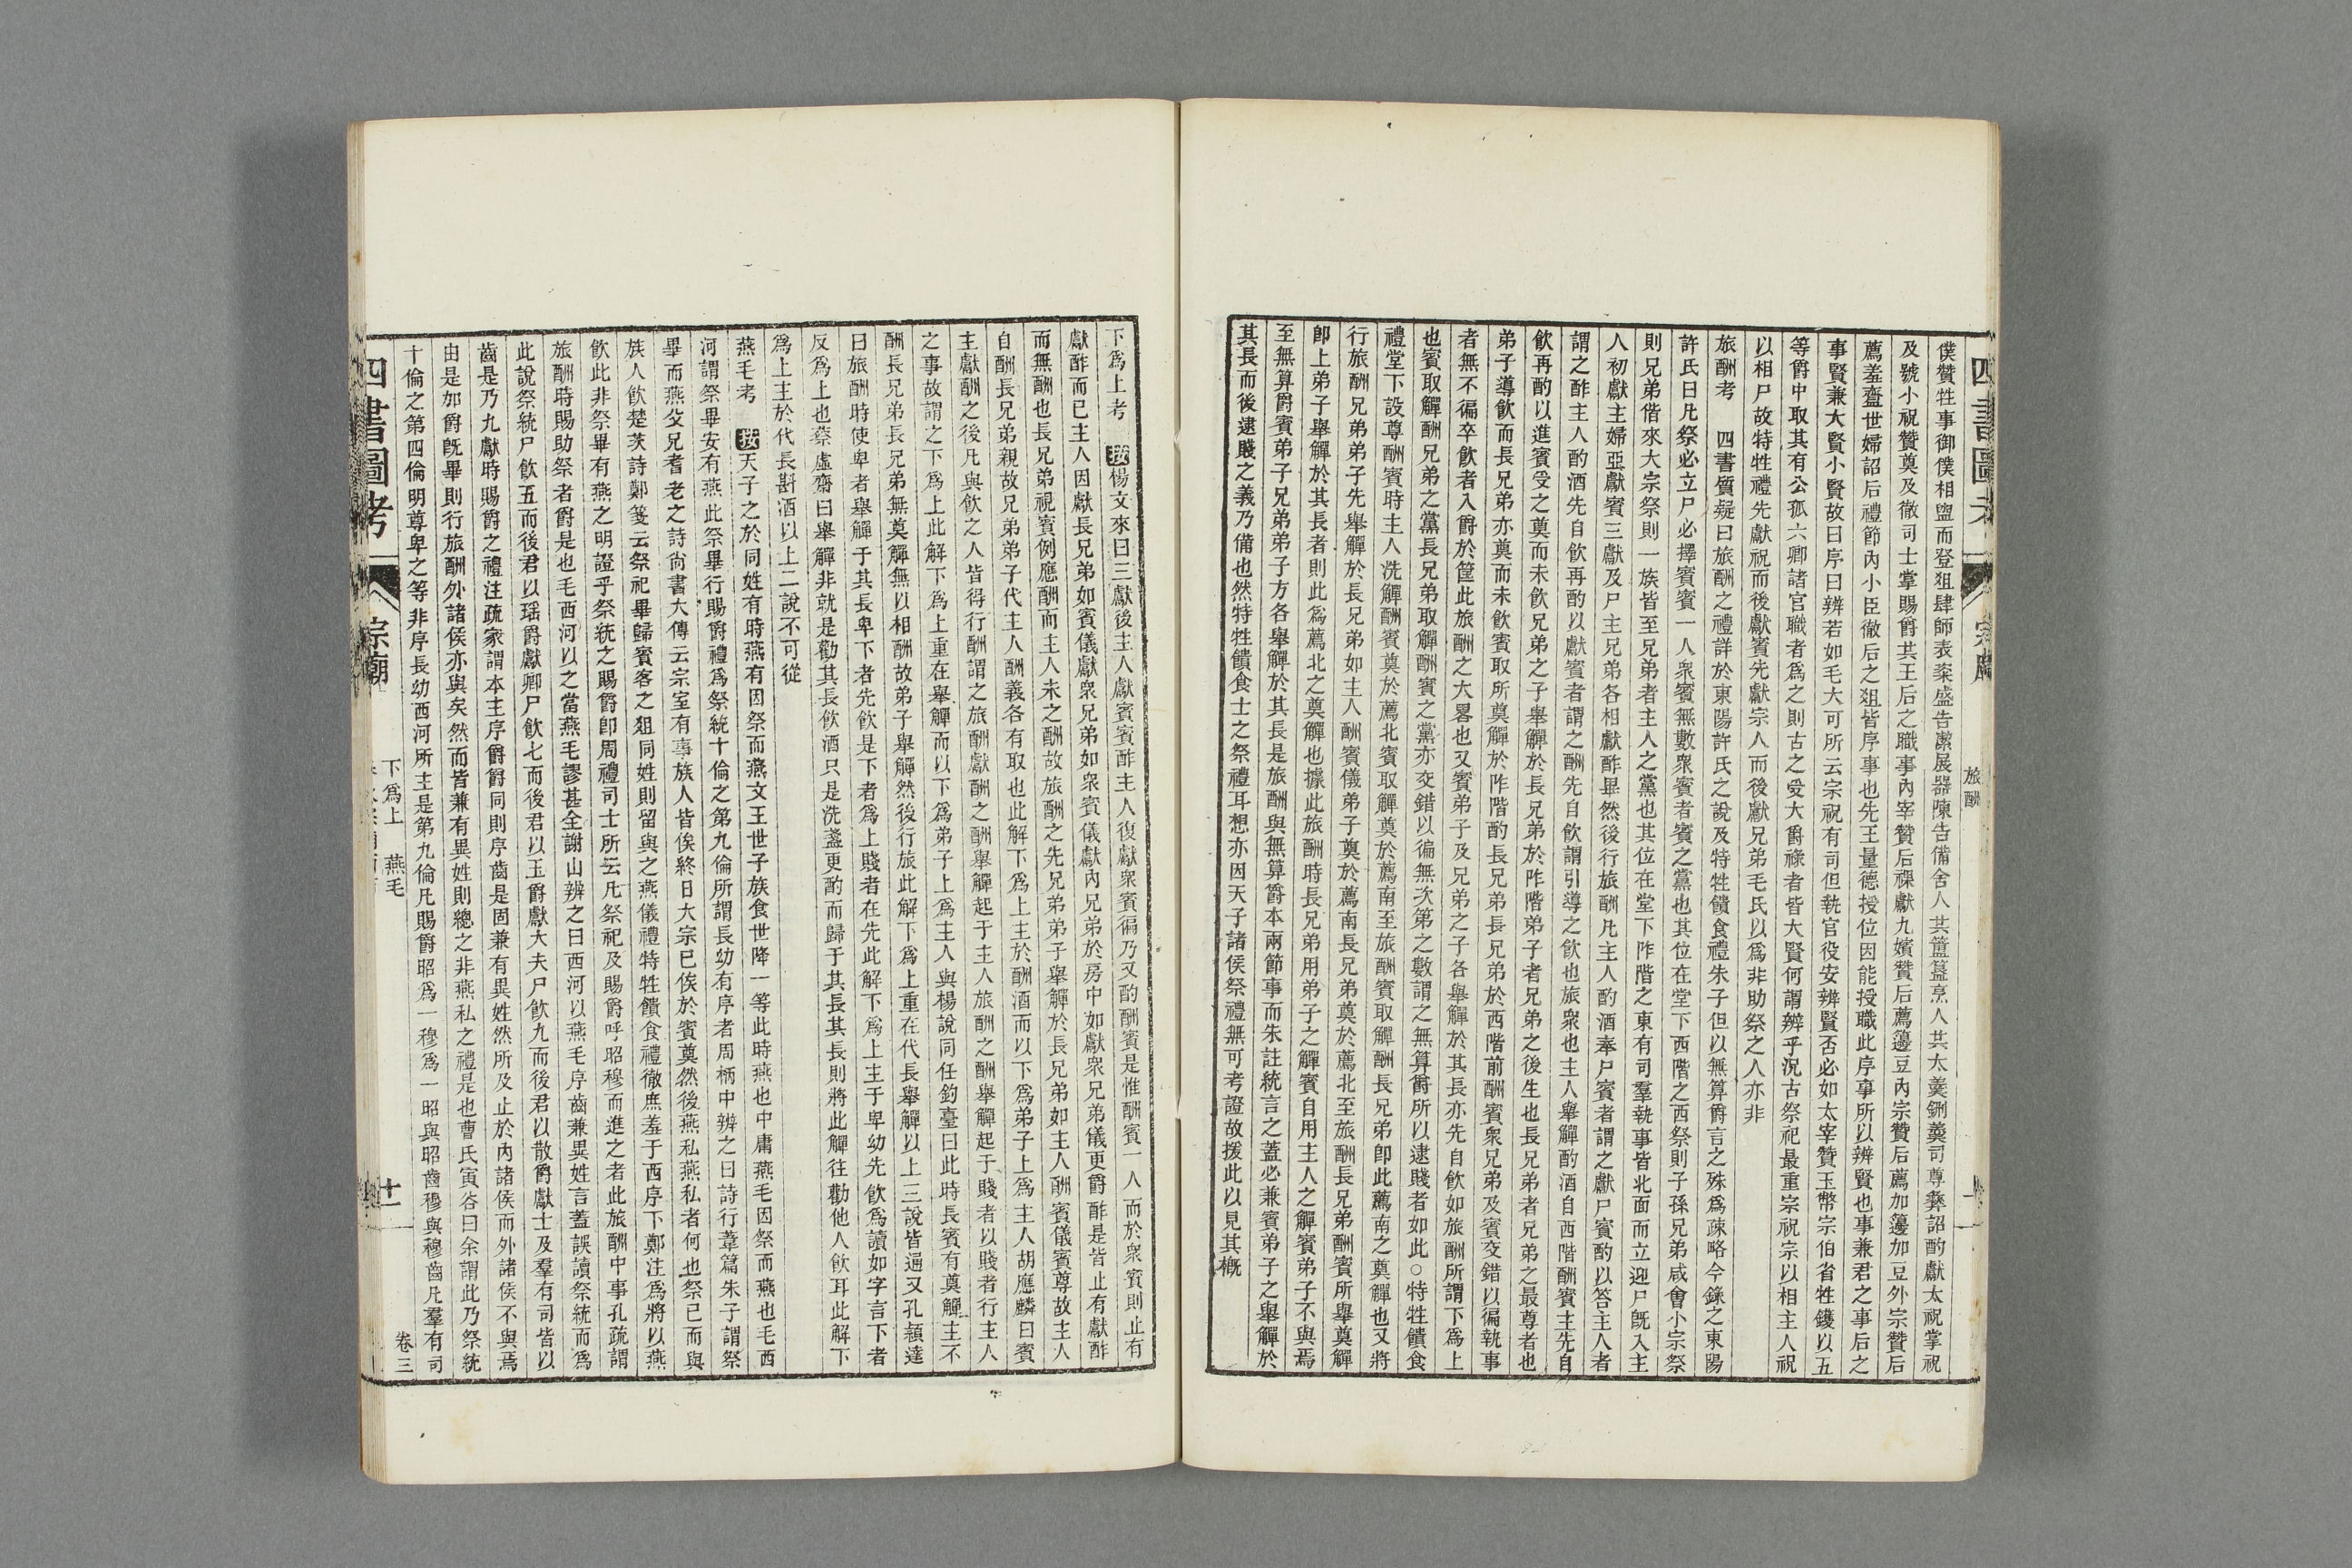 僕贊牲事御僕相盥而登俎肆師表粢盛告潔展器陳告備舍人共簠簋烹人共太羹鉶羹司尊彝詔酌獻太祝掌祝
及號小祝贊奠及徹司士掌賜爵其王后之職事內宰贊后祼獻九嬪贊后薦籩豆內宗贊后薦加籩加豆外宗贊后
薦羞齍世婦詔后禮節內小臣徹后之俎皆序事也先王量德授位因能授職此序事所以辨賢也事兼君之事后之
事賢兼大賢小賢故曰序曰辨若如毛大可所云宗祝有司但執官役安辨賢否必如太宰贊玉幣宗伯省牲鑊以五
等爵中取其有公孤六卿諸官職者爲之則古之受大爵祿者皆大賢何謂辨乎況古祭祀最重宗祝宗以相主人祝
以相尸故特牲禮先獻祝而後獻賓先獻宗人而後獻兄弟毛氏以爲非助祭之人亦非
旅酬考 四書質疑曰旅酬之禮詳於東陽許氏之說及特牲饋食禮朱子但以無算爵言之殊爲疎略今錄之東陽
許氏曰凡祭必立尸必擇賓賓一人衆賓無數衆賓者賓之黨也其位在堂下西階之西祭則子孫兄弟咸會小宗祭
則兄弟偕來大宗祭則一族皆至兄弟者主人之黨也其位在堂下阼階之東有司羣執事皆北面而立迎尸既入主
人初獻主婦亞獻賓三獻及尸主兄弟各相獻酢畢然後行旅酬凡主人酌酒奉尸賓者謂之獻尸賓酌以答主人者
謂之酢主人酌酒先自飲再酌以獻賓者謂之酬先自飲謂引導之飲也旅衆也主人舉觶酌酒自西階酬賓主先自
飲再酌以進賓受之奠而未飲兄弟之子舉觶於長兄弟於阼階弟子者兄弟之後生也長兄弟者兄弟之最尊者也
弟子導飲而長兄弟亦奠而未飲賓取所奠觶於阼階酌長兄弟長兄弟於西階前酬賓衆兄弟及賓交錯以徧執事
者無不徧卒飲者入爵於篚此旅酬之大畧也又賓弟子及兄弟之子各舉觶於其長亦先自飲如旅酬所謂下爲上
也賓取觶酬兄弟之黨長兄弟取觶酬賓之黨亦交錯以徧無次第之數謂之無算爵所以逮賤者如此○特牲饋食
禮堂下設尊酬賓時主人洗觶酬賓奠於薦北賓取觶奠於薦南至旅酬賓取觶酬長兄弟卽此薦南之奠觶也又將
行旅酬兄弟弟子先舉觶於長兄弟如主人酬賓儀弟子奠於薦南長兄弟奠於薦北至旅酬長兄弟酬賓所舉奠觶
卽上弟子舉觶於其長者則此爲薦北之奠觶也據此旅酬時長兄弟用弟子之觶賓自用主人之觶賓弟子不與焉
至無算爵賓弟子兄弟弟子方各舉觶於其長是旅酬與無算爵本兩節事而朱註統言之蓋必兼賓弟子之舉觶於
其長而後逮賤之義乃備也然特牲饋食士之祭禮耳想亦因天子諸侯祭禮無可考證故援此以見其槪
旅酬
下爲上考 按楊文來曰三獻後主人獻賓賓酢主人復獻衆賓徧乃又酌酬賓是惟酬賓一人而於衆賓則止有
獻酢而已主人因獻長兄弟如賓儀獻衆兄弟如衆賓儀獻內兄弟於房中如獻衆兄弟儀更爵酢是皆止有獻酢
而無酬也長兄弟視賓例應酬而主人未之酬故旅酬之先兄弟弟子舉觶於長兄弟如主人酬賓儀賓尊故主人
自酬長兄弟親故兄弟弟子代主人酬義各有取也此解下爲上主於酬酒而以下爲弟子上爲主人胡應麟曰賓
主獻酬之後凡與飲之人皆得行酬謂之旅酬獻酬之酬舉觶起于主人旅酬之酬舉觶起于賤者以賤者行主人
之事故謂之下爲上此解下爲上重在舉觶而以下爲弟子上爲主人與楊說同任釣臺曰此時長賓有奠觶主不
酬長兄弟長兄弟無奠觶無以相酬故弟子舉觶然後行旅此解下爲上重在代長舉觶以上三說皆通又孔穎達
曰旅酬時使卑者舉觶于其長卑下者先飲是下者爲上賤者在先此解下爲上主于卑幼先飲爲讀如字言下者
反爲上也蔡虛齋曰舉觶非就是勸其長飲酒只是洗盞更酌而歸于其長其長則將此觶往勸他人飲耳此解下
爲上主於代長斟酒以上二說不可從
燕毛考 按天子之於同姓有時燕有因祭而燕文王世子族食世降一等此時燕也中庸燕毛因祭而燕也毛西
河謂祭畢安有燕此祭畢行賜爵禮爲祭統十倫之第九倫所謂長幼有序者周柄中辨之曰詩行葦篇朱子謂祭
畢而燕父兄耆老之詩尙書大傳云宗室有事族人皆俟終日大宗已俟於賓奠然後燕私燕私者何也祭已而與
族人飲楚茨詩鄭箋云祭祀畢歸賓客之俎同姓則留與之燕儀禮特牲饋食禮徹庶羞于西序下鄭注爲將以燕
飲此非祭畢有燕之明證乎祭統之賜爵卽周禮司士所云凡祭祀及賜爵呼昭穆而進之者此旅酬中事孔疏謂
旅酬時賜助祭者爵是也毛西河以之當燕毛謬甚全謝山辨之曰西河以燕毛序齒兼異姓言蓋誤讀祭統而爲
此說祭統尸飲五而後君以瑤爵獻卿尸飲七而後君以玉爵獻大夫尸飲九而後君以散爵獻士及羣有司皆以
齒是乃九獻時賜爵之禮注疏家謂本主序爵爵同則序齒是固兼有異姓然所及止於內諸侯而外諸侯不與焉
由是加爵旣畢則行旅酬外諸侯亦與矣然而皆兼有異姓則總之非燕私之禮是也曹氏寅谷曰余謂此乃祭統
十倫之第四倫明尊卑之等非序長幼西河所主是第九倫凡賜爵昭爲一穆爲一昭與昭齒穆與穆齒凡羣有司
四書圖考 宗廟 下爲上 燕毛 廿 卷三